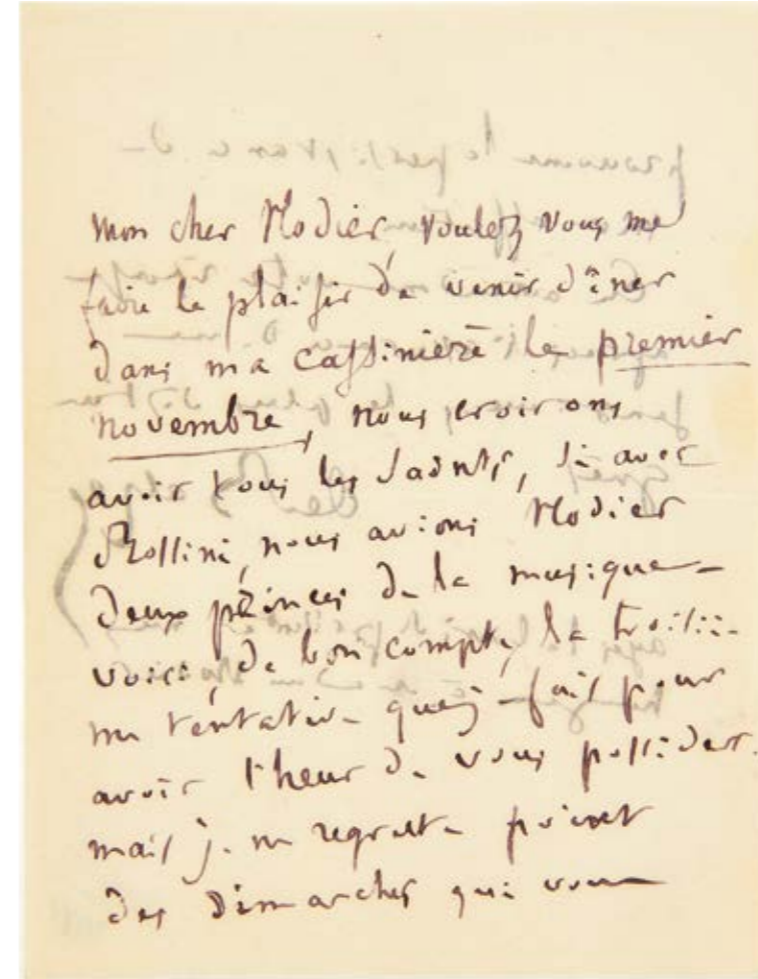 mon cher Nodier, voulez vous me
faire le plaisir de venir dîner
dans ma cassinière le premier
novembre, nous croirons
avoir tous les Saints, si avec
Rossini, nous avions Nodier
deux princes de la musique
voici, de bon compte, la troisiè-
me tentative que je fais pour
avoir l'heur de vous posséder.
mais je ne regrette point
des démarches qui vous